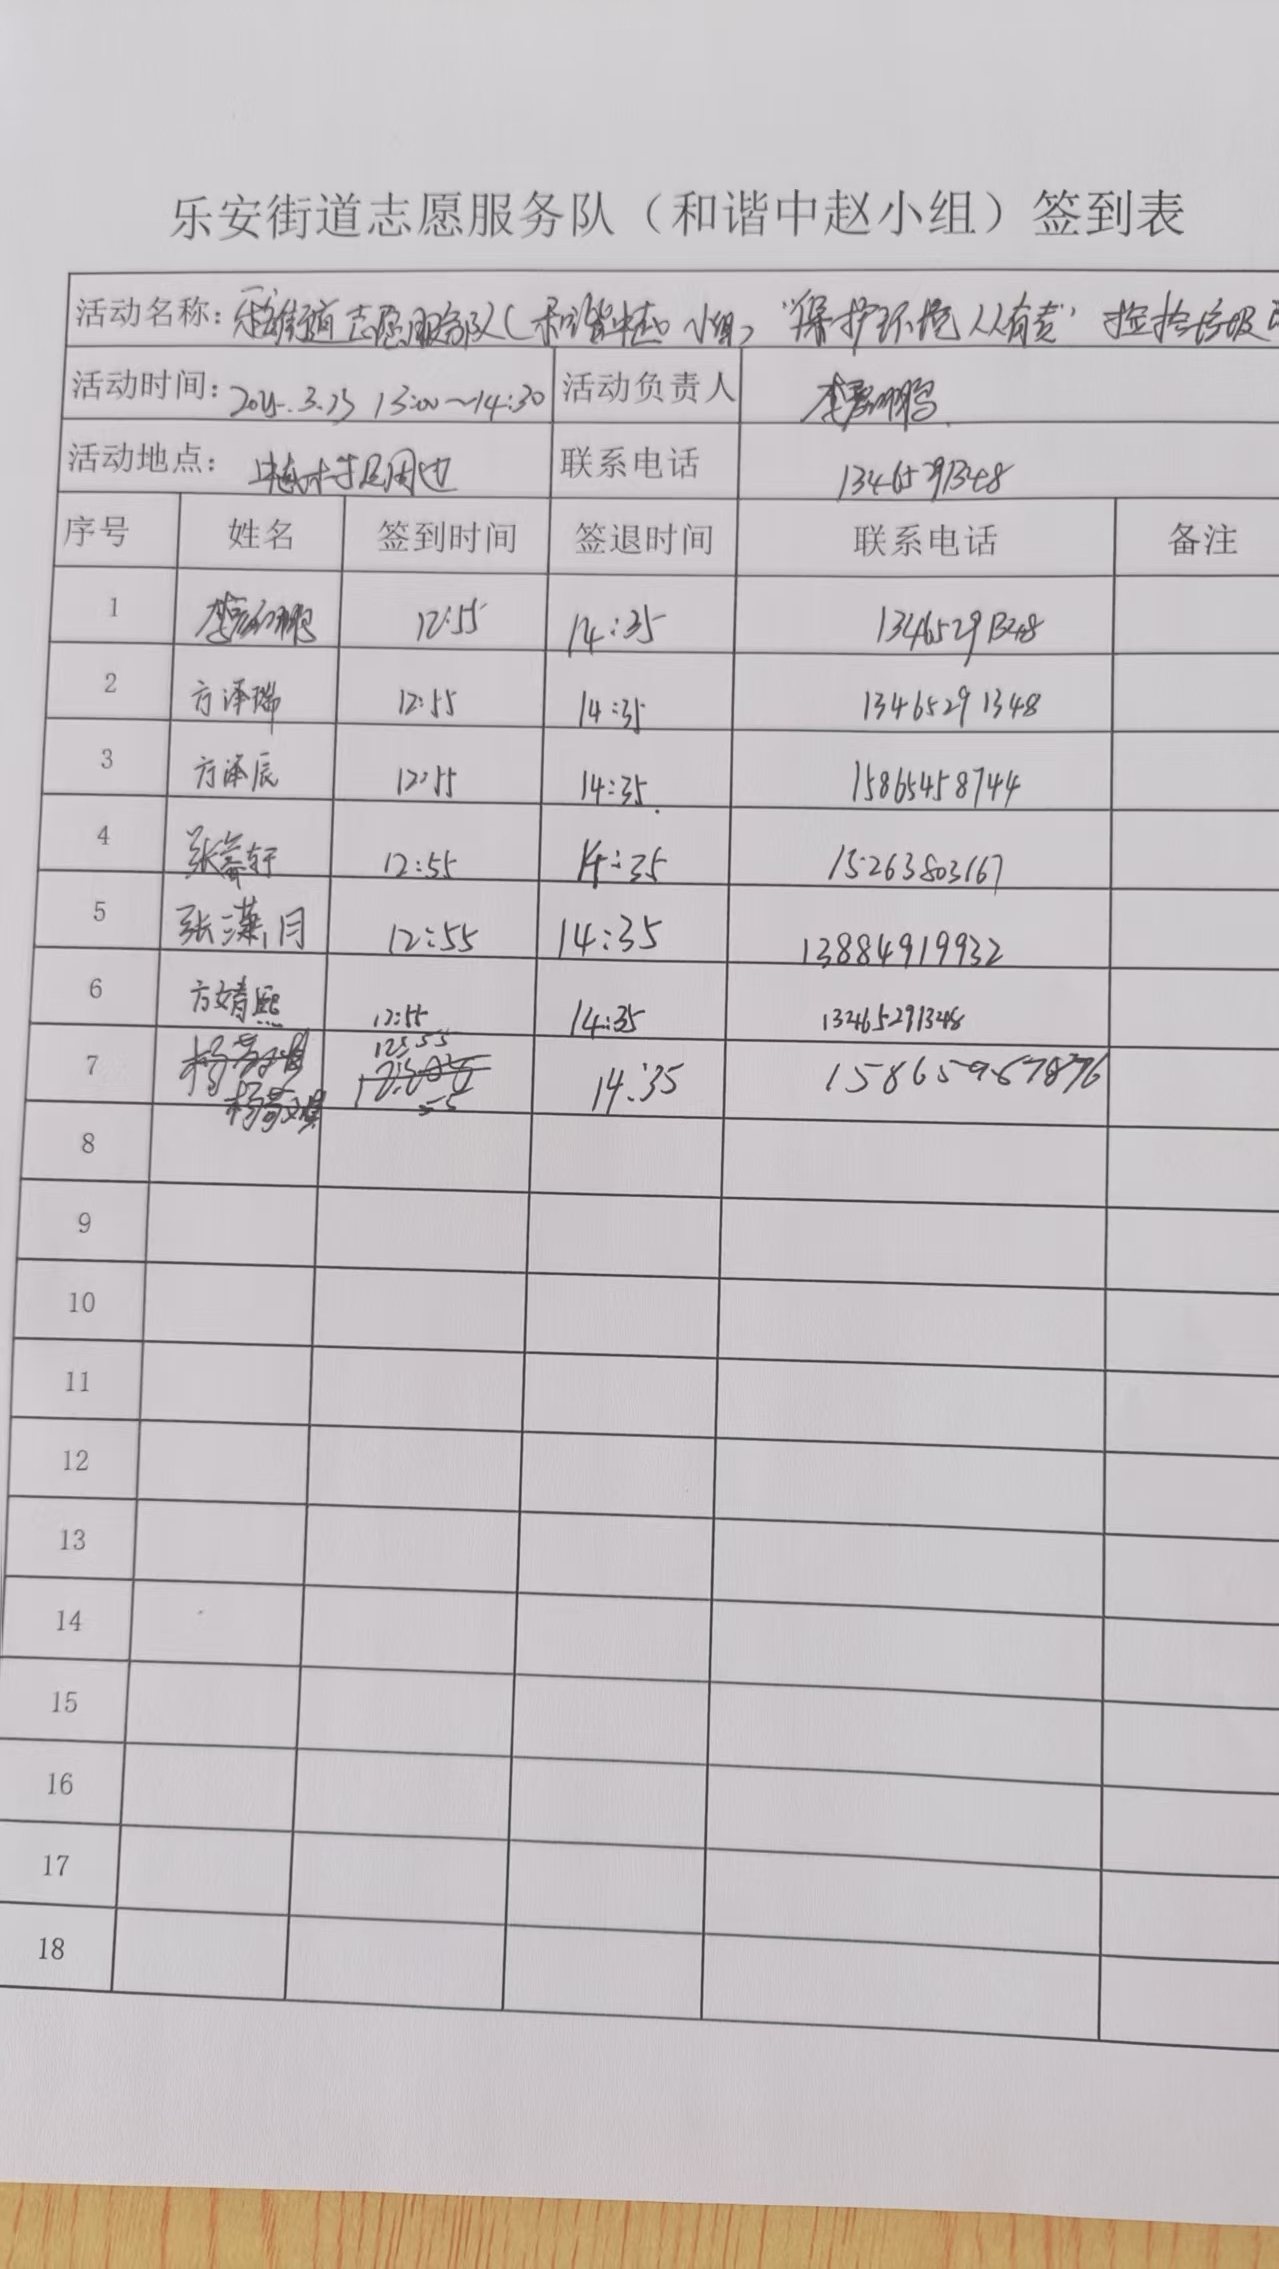 乐安街道志愿服务队（和谐中赵小组）签到表
活动名称：乐安街道志愿服务队（和谐中赵小组）“保护环境人人有责”捡拾垃圾
活动时间：2025.3.23 13:00～14:30 活动负责人
活动地点：中赵村村民周边 联系电话 13465291348
序号 姓名 签到时间 签退时间 联系电话 备注
1 12:55 14:35 13465291348
2 方泽瑞 12:55 14:35 13465291348
3 方泽辰 12:55 14:35 15865458744
4 张睿轩 12:55 14:35 15263803167
5 张潇月 12:55 14:35 13884919932
6 方婧熙 12:55 14:35 13465291348
7 14:35
8
9
10
11
12
13
14
15
16
17
18